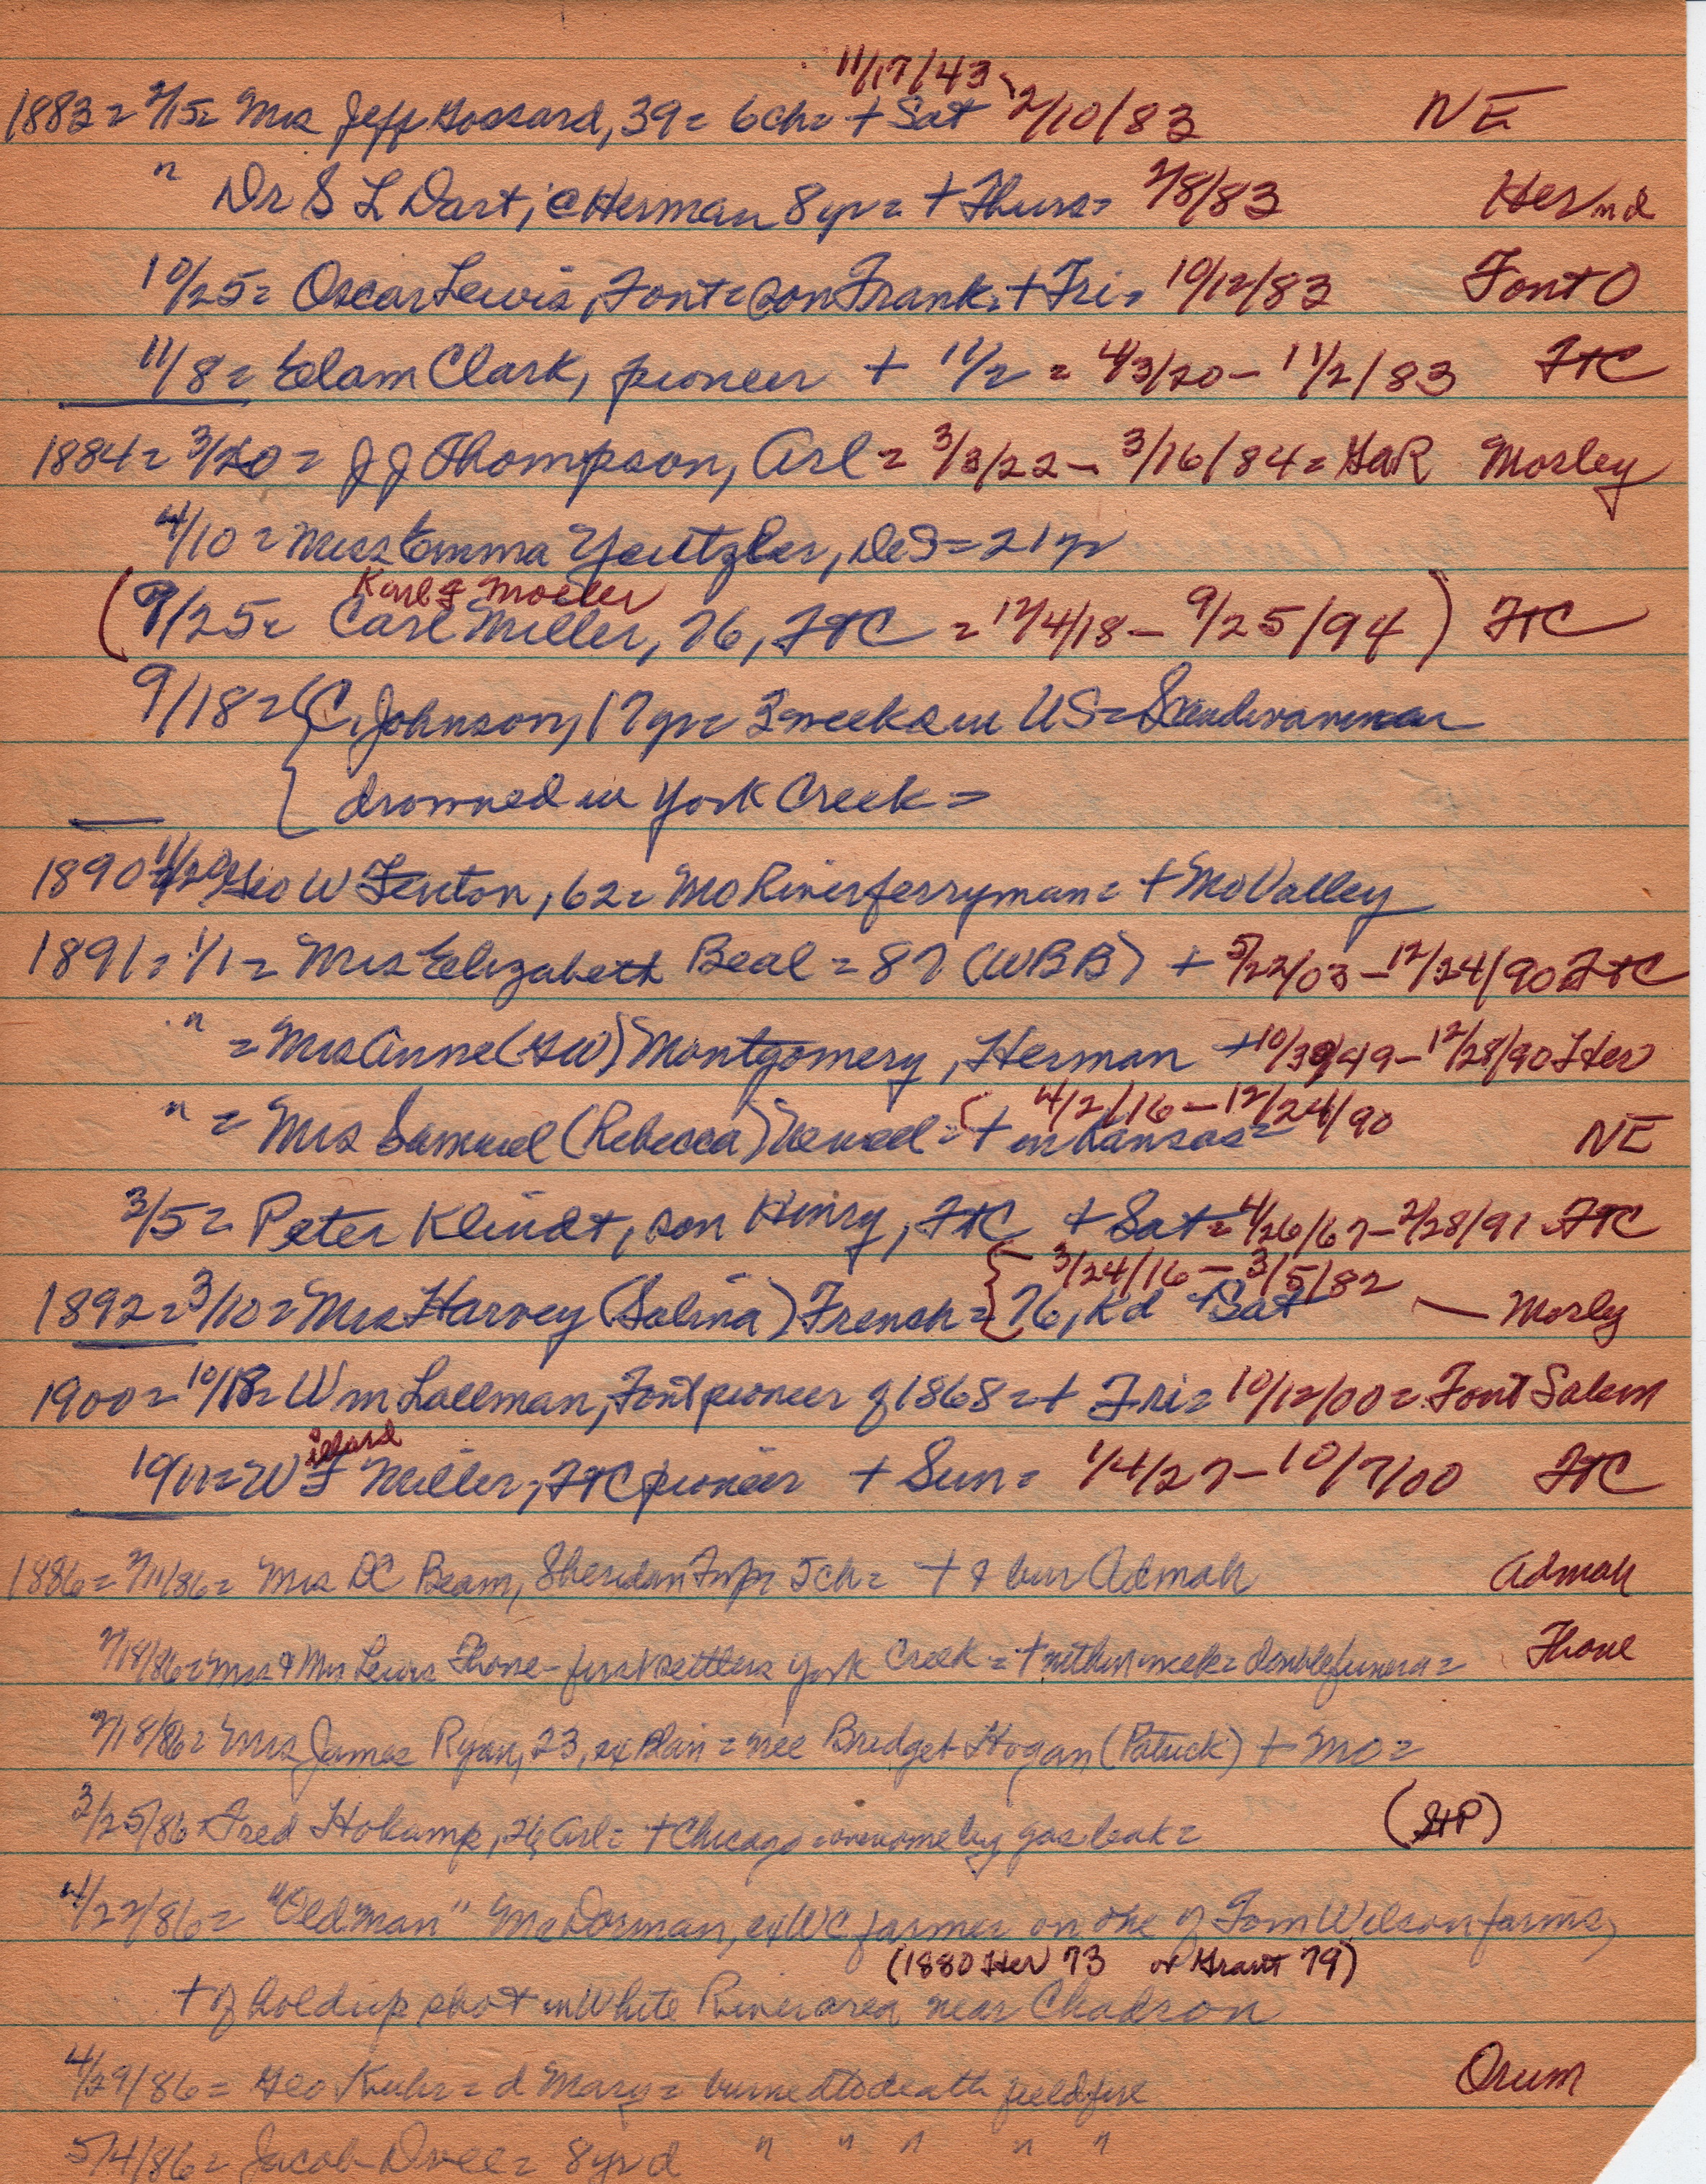 11/17/43
1883 = 2/15 = Mrs Jeff Gossard, 39 = 6 ch = + Sat 2/10/83 NE
" Dr S L Dart, @ Herman 8 yr = + Thurs = 2/8/83 Her nd
10/25 = Oscar Lewis, Font = son Frank. + Fri = 10/12/83 Font O
11/8 = Elam Clark, pioneer + 11/2 = 4/3/20 - 11/2/83 FtC
1884 = 3/20 = J J Thompson, Arl = 3/3/22 - 3/16/84 = GaR Mosley
4/10 = Miss Emma Yeutzler, DeS = 21 yr
Karl F Moeller
(9/25 = Carl Miller, 76, FtC = 12/4/18 - 9/25/94) FtC
9/18 = {C. Johnson, 17 yr = 3 weeks in US = Scandinavian
{ drowned in York Creek =
1890 11/20 Geo W Fenton, 62 = Mo River ferryman = + Mo Valley
1891 = 1/1 = Mrs Elizabeth Beal = 87 (WBB) + 5/22/03 - 12/24/90 FtC
" = Mrs Anne (GW) Montgomery, Herman + 10/30/49 - 12/28/90 Her
{ 4/2/16 - 12/24/90
" = Mrs Samuel (Rebecca) Newell = + in Kansas = NE
3/5 = Peter Klindt, son Hinry, FtC + Sat = 4/26/67 - 2/28/91 FtC
{ 3/24/16 - 3/5/82
1892 = 3/10 = Mrs Harvey (Salina) French = 76, Kd + Sat — Mosly
1900 = 10/18 = Wm Lallman, Font pioneer of 1868 = + Fri = 10/12/00 = Font Salem
illard
19/11 = W F Miller, FtC pioneer + Sun = 1/4/27 - 10/7/00 FtC
1886 = 2/11/86 = Mrs DC Beam, Sheridan Twp = 5 ch = + & bur Admah Admah
2/18/86 = Mrs & Mr Lewis Thone - first settlers York Creek = + within week = double funeral = Thone
2/18/86 = Mrs James Ryan, 23, ex Blair = nee Bridget Hogan (Patrick) + Mo =
3/25/86 = Fred Hokamp, Arl = + Chicago = overcome by gas leak = (StP)
4/22/86 = "Old man" McDorman, ex WC farmer on one of Tom Wilson farms,
(1880 Her 73 or Grant 79)
+ of holdup shot in White River area near Chadron
4/29/86 = Geo Kuhr = d Mary = burned to death field fire Orum
5/4/86 = Jacob = 8 yr d " " " " "